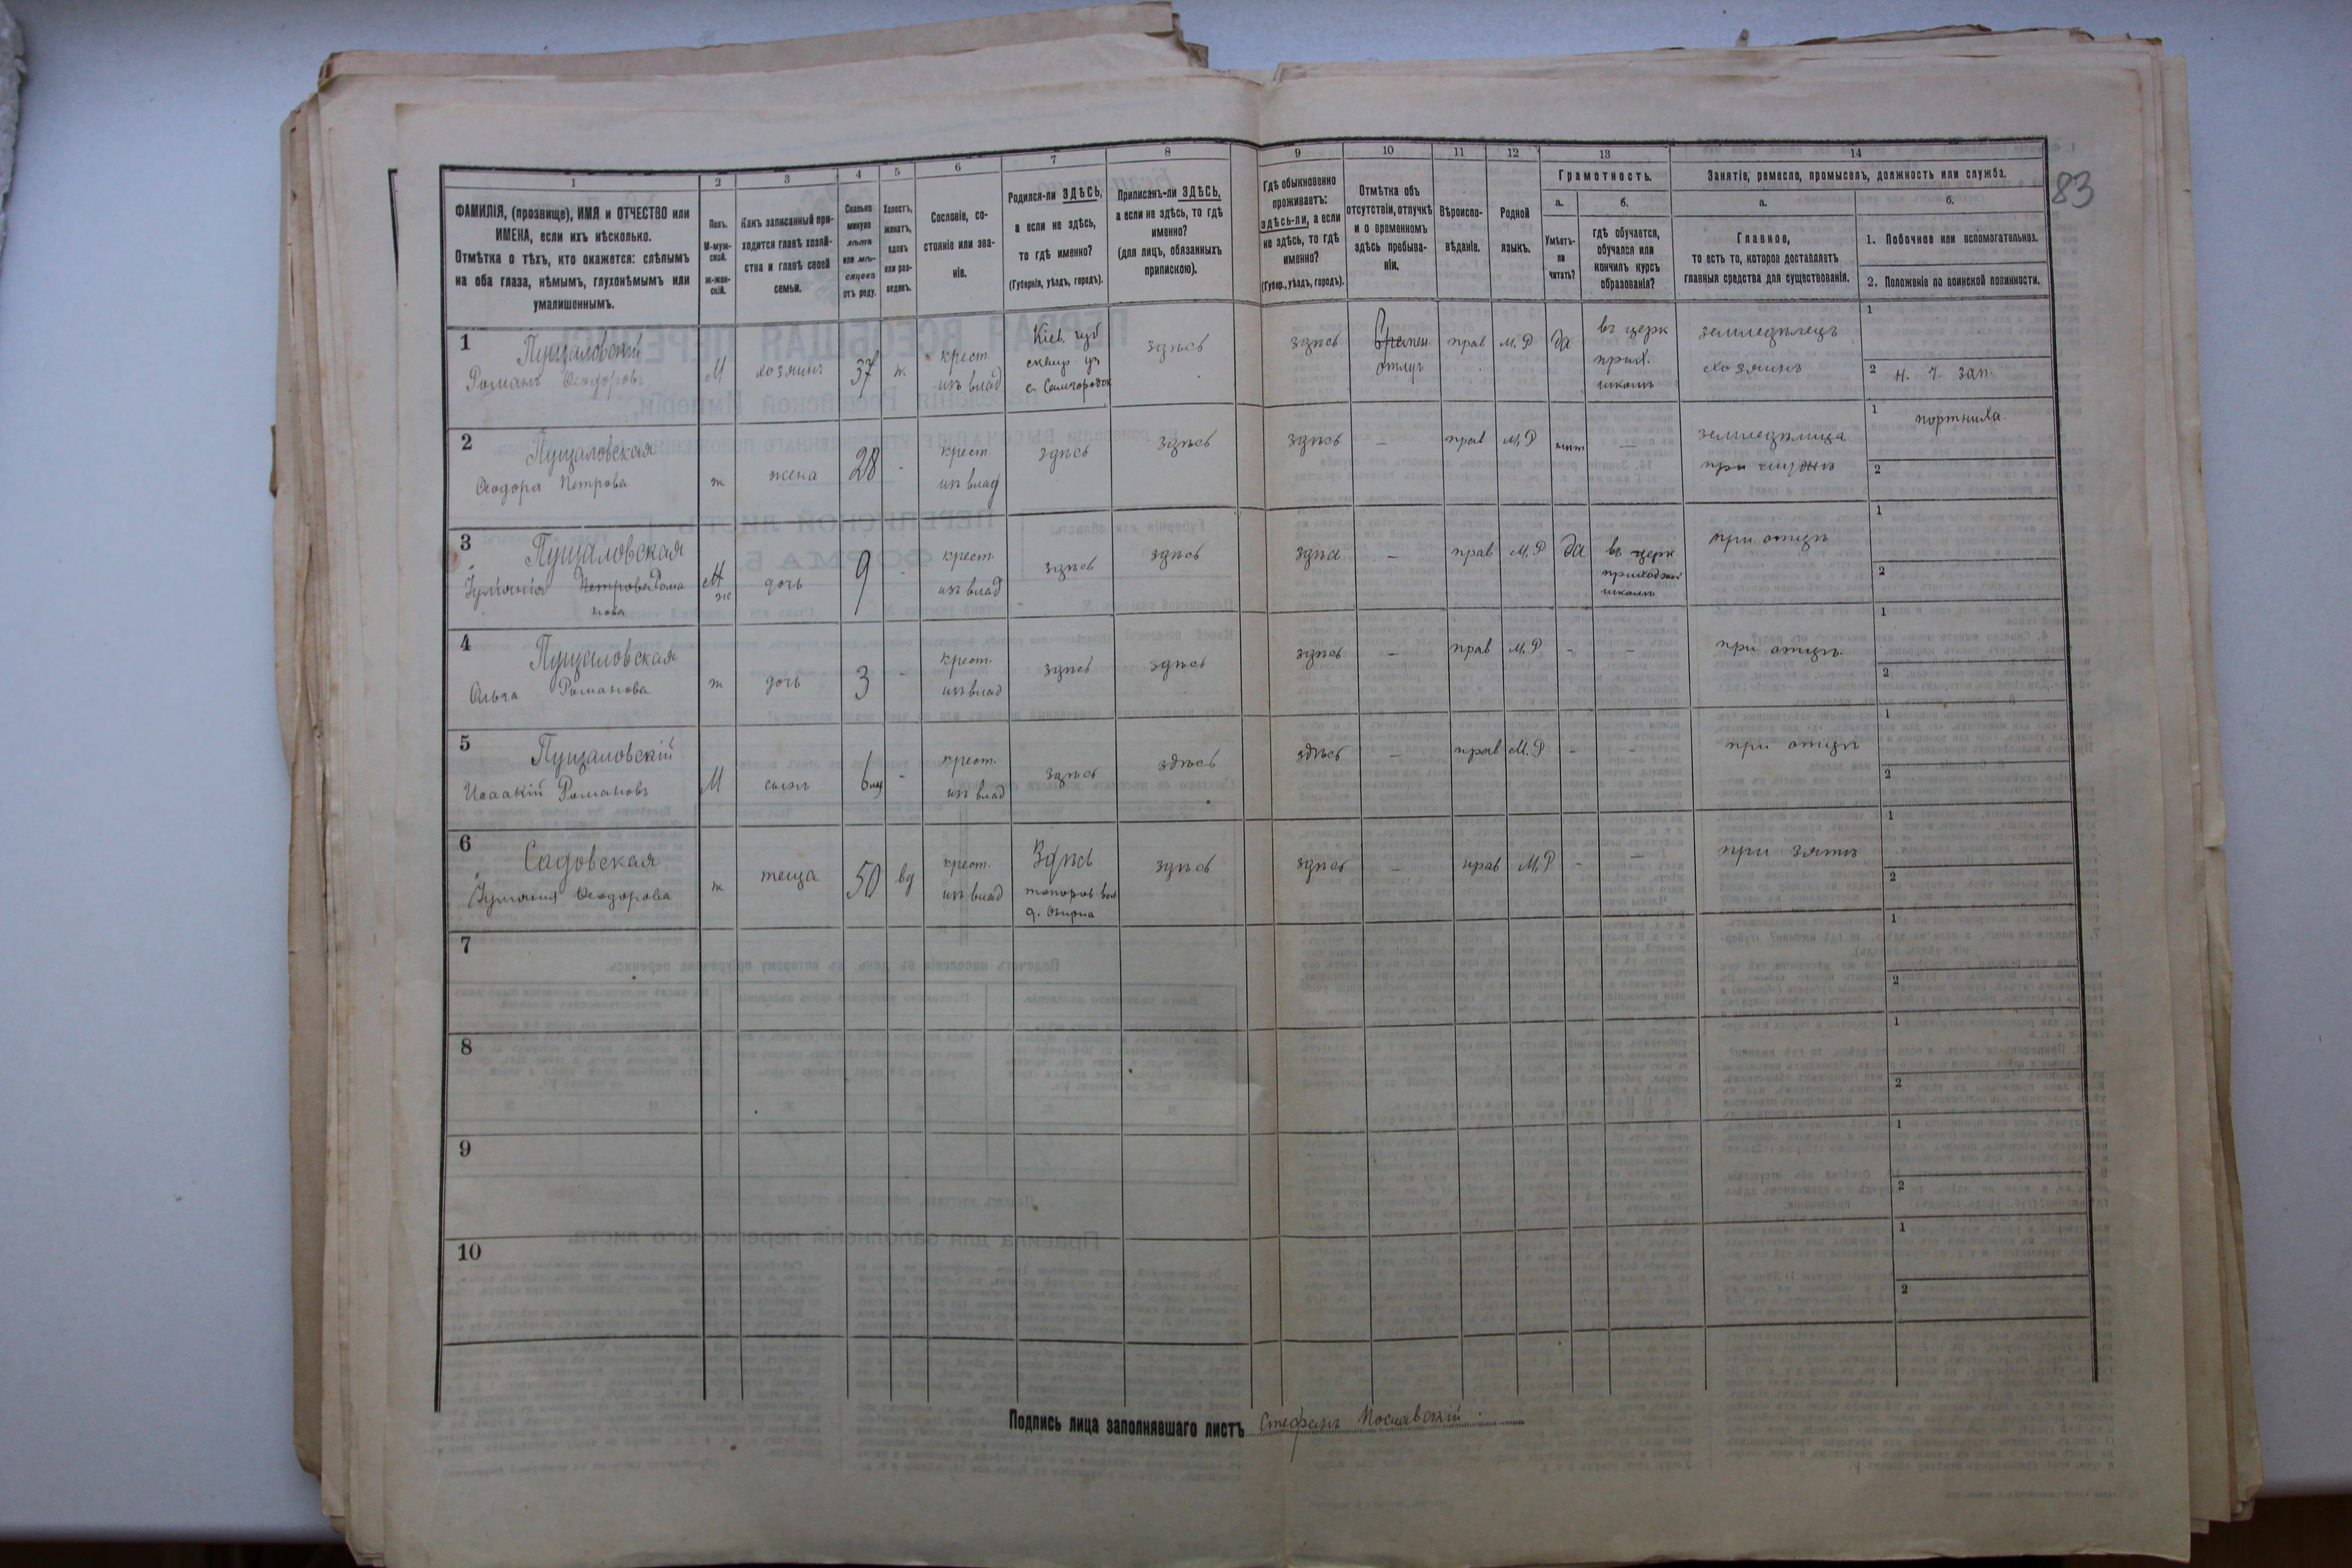 83
1 2 3 4 5 6 7 8 9 10 11 12 13 14
ФАМИЛІЯ, (прозвище), ИМЯ и ОТЧЕСТВО или ИМЕНА, если ихъ нѣсколько.
Отмѣтка о тѣхъ, кто окажется: слѣпымъ на оба глаза, нѣмымъ, глухонѣмымъ или умалишоннымъ.
Полъ.
М-мужской.
Ж-женскій.
Какъ записанный приходится главѣ хозяйства и главѣ своей семьи.
Сколько минуло лѣтъ или мѣсяцевъ отъ роду.
Холостъ, женатъ, вдовъ или разведенъ.
Сословіе, состояніе или званіе.
Родился-ли ЗДѢСЬ, а если не здѣсь, то гдѣ именно?
(Губернія, уѣздъ, городъ).
Приписанъ-ли ЗДѢСЬ, а если не здѣсь, то гдѣ именно?
(для лицъ, обязанныхъ припискою).
Гдѣ обыкновенно проживаетъ: здѣсь-ли, а если не здѣсь, то гдѣ именно?
(Губер., уѣздъ, городъ).
Отмѣтка объ отсутствіи, отлучкѣ и о временномъ здѣсь пребываніи.
Вѣроисповѣданіе.
Родной языкъ.
Грамотность.
а. Умѣетъ-ли читать?
б. гдѣ обучается, обучался или кончилъ курсъ образованія?
Занятіе, ремесло, промыселъ, должность или служба.
а. Главное,
то есть то, которое доставляетъ главныя средства для существованія.
б.
1. Побочное или вспомогательное.
2. Положеніе по воинской повинности.
1 Пущаловскій
Романъ Ѳеодоровъ М хозяинъ 37 ж крест. изъ влад Кіев. губ сквир. уз с. Самгородок здѣсь здѣсь Времен отлуч прав М.Р да въ церк прих. школѣ земледѣлецъ хозяинъ 1 2 н. ч. зап.
2 Пущаловская
Ѳеодора Петрова ж жена 28 - крест. изъ влад здѣсь здѣсь здѣсь — прав М.Р нѣт — земледѣлица при мужѣ 1 портниха. 2
3 Пущаловская
Іуліанія Петрова Романова М ж дочь 9 - крест. изъ влад здѣсь здѣсь здѣсь — прав М.Р да въ церк приходской школѣ при отцѣ 1 2
4 Пущаловская
Ольга Романова ж дочь 3 - крест. изъ влад здѣсь здѣсь здѣсь — прав М.Р - - при отцѣ 1 2
5 Пущаловскій
Исаакій Романовъ М сынъ 6 мц - крест. изъ влад здѣсь здѣсь здѣсь — прав М.Р - - при отцѣ 1 2
6 Садовская
Іуліанія Ѳеодорова ж теща 50 вд крест. изъ влад Здѣсь топоров вол здѣсь здѣсь — прав М.Р - — при зятѣ 1 2
7 1 2
8 1 2
9 1 2
10 1 2
Подпись лица заполнявшаго листъ Стефанъ Пославскій